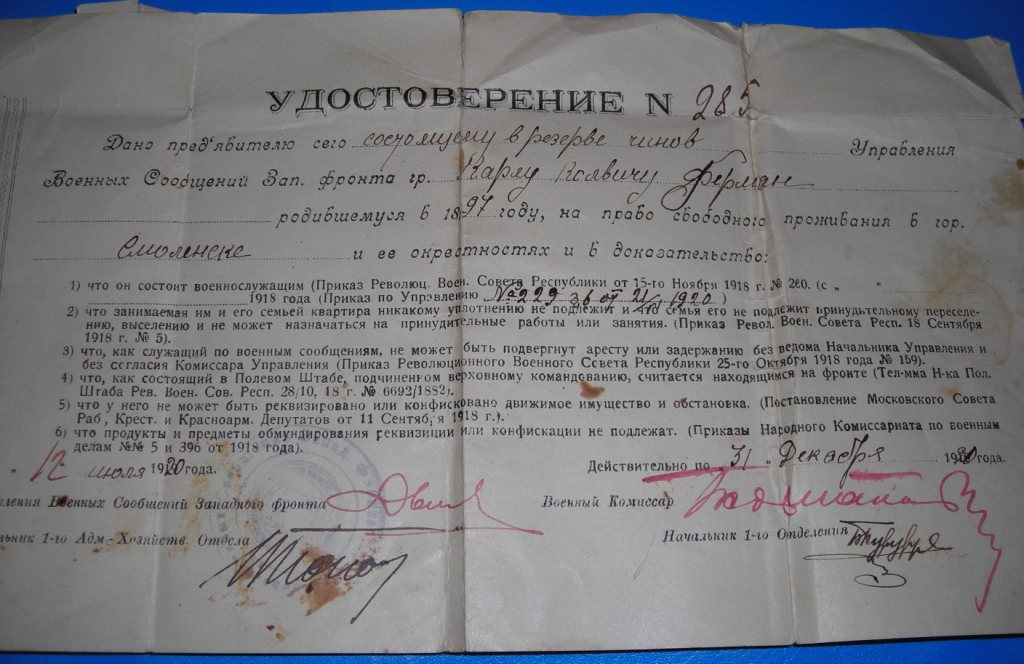 УДОСТОВЕРЕНИЕ N 285
Дано пред'явителю сего состоящему в резерве чинов Управления
Военных Сообщений Зап. фронта гр. Карлу Ферман
родившемуся в 1897 году, на право свободного проживания в гор.
Смоленске и ее окрестностях и в доказательство:
1) что он состоит военнослужащим (Приказ Революц. Воен. Совета Республики от 15-го Ноября 1918 г. № 260. (с „ "
1918 года (Приказ по Управлению № 229 от 1920 )
2) что занимаемая им и его семьей квартира никакому уплотнению не подлежит и что семья его не подлежит принудительному переселе-
нию, выселению и не может назначаться на принудительные работы или занятия. (Приказ Револ. Воен. Совета Респ. 18 Сентября
1918 г. № 5).
3) что, как служащий по военным сообщениям, не может быть подвергнут аресту или задержанию без ведома Начальника Управления и
без согласия Комиссара Управления (Приказ Революционного Военного Совета Республики 25-го Октября 1918 года № 159).
4) что, как состоящий в Полевом Штабе, подчиненном верховному командованию, считается находящимся на фронте (Тел-мма Н-ка Пол.
Штаба Рев. Воен. Сов. Респ. 28/10, 18 г. № 6692/1882).
5) что у него не может быть реквизировано или конфисковано движимое имущество и обстановка. (Постановление Московского Совета
Раб., Крест. и Красноарм. Депутатов от 11 Сентября 1918 г.).
6) что продукты и предметы обмундирования реквизиции или конфискации не подлежат. (Приказы Народного Комиссариата по военным
делам №№ 5 и 396 от 1918 года).
„12" июля 1920 года. Действительно по „31" Декабря 1920 года.
ления Военных Сообщений Западного фронта Военный Комиссар
льник 1-го Адм-Хозяйств. Отдела Начальник 1-го Отделения